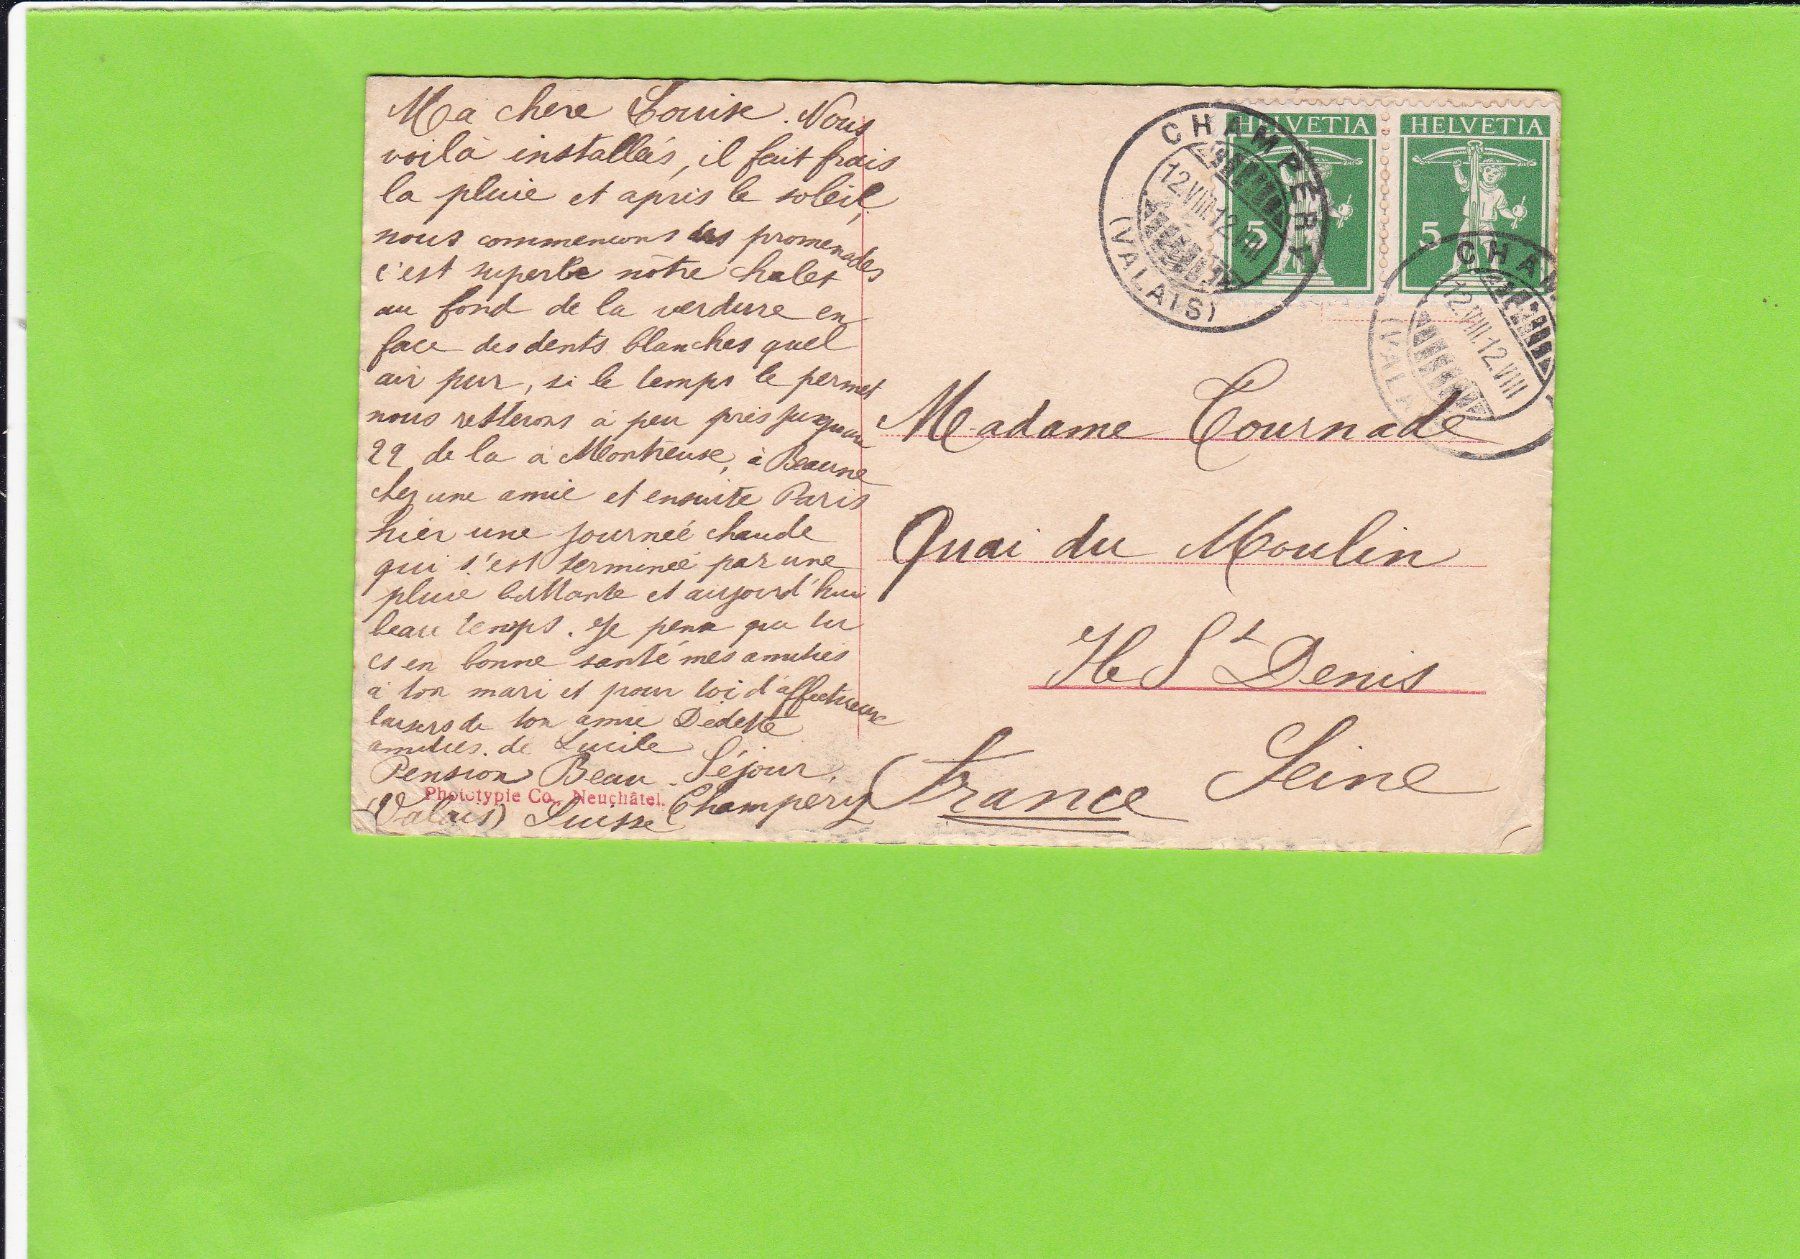 Ma chere Louise. Nous
voilà installées, il fait frais
la pluie et après le soleil,
nous commencons les promenades
c'est superbe nôtre chalet
au fond de la verdure en
face des dents blanches quel
air pur, si le temps le permet
nous resterons à peu près jusqu'au
22 de la à Montreuse, à Beaune
chez une amie et ensuite Paris
hier une journeé chaude
qui s'est terminée par une
pluie battante et aujourd'hui
beau temps. Je pense que tu
es en bonne santé mes amities
à ton mari et pour toi d'affectueux
baisers de ton amie Dedette
amities de Lucile
Pension Beau-Séjour,
Champery
(Valais) Suisse
Phototypie Co., Neuchâtel.
HELVETIA
5
HELVETIA
5
CHAMPÉRY
12.VIII.12.VIII
(VALAIS)
CHAM
12.VIII.12.VIII
(VALA
Madame Tournade
Quai du Moulin
Ile St Denis
Seine
(France